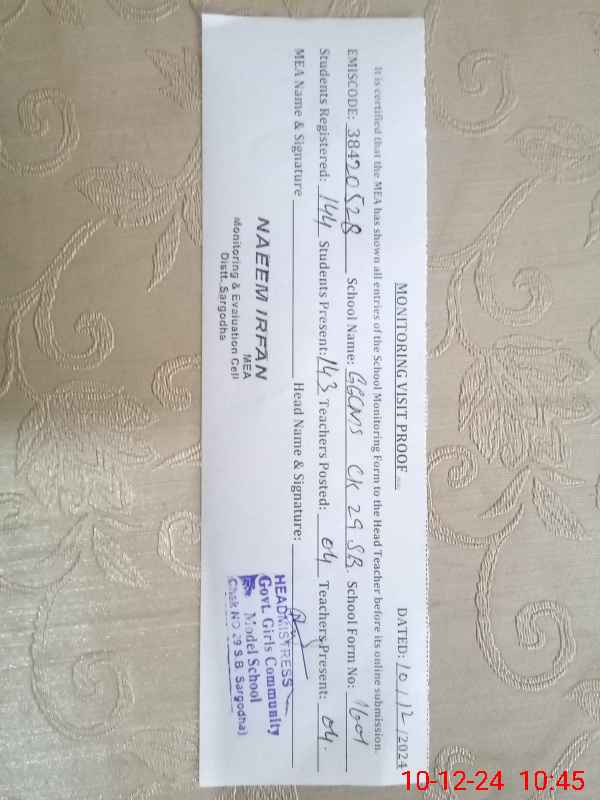 MONITORING VISIT PROOF
DATED: 10/12/2024
It is certified that the MEA has shown all entries of the School Monitoring Form to the Head Teacher before its online submission.
EMISCODE: 38420528 School Name: GGCMS CK 29 SB. School Form No: 1601
Students Registered: 144 Students Present: 143 Teachers Posted: 04 Teachers Present: 04.
MEA Name & Signature Head Name & Signature:
NAEEM IRFAN
MEA
Monitoring & Evaluation Cell
Distt. Sargodha
HEADMISTRESS
Govt. Girls Community
Model School
Chak NO 29 S.B. Sargodha)
10-12-24 10:45